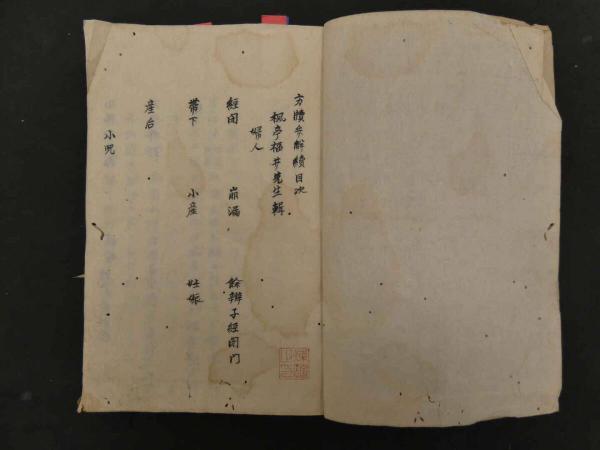 方牘弁解續目次
楓亭福井先生輯
婦人
經閉 崩漏 餘辨于經閉門
帶下 小産 妊娠
産后
小児